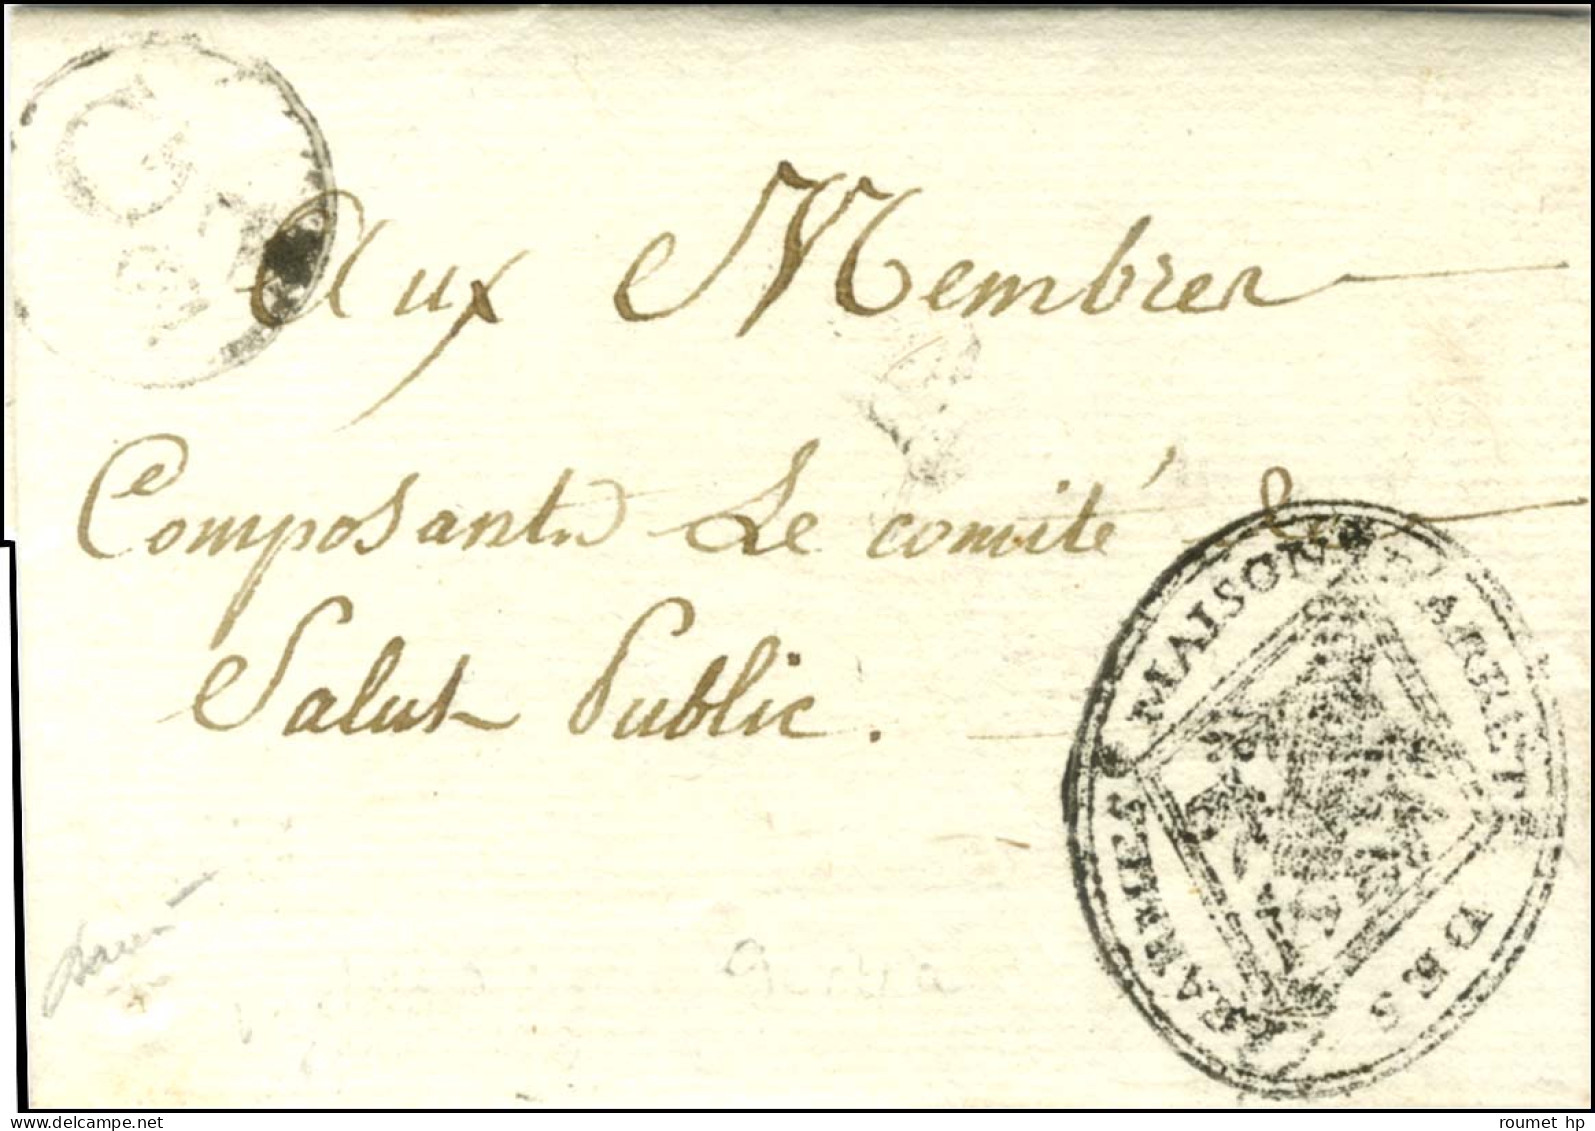 G
Aux Membres
Composants Le comité de
Salut Public.
MAISON D'ARRÊT DES CARMES
roumet hp